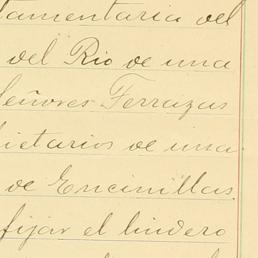 tamentaria del
del Rio de una
Señores Terrazas
ietarios de una
de Encinillas.
fijar el lindero